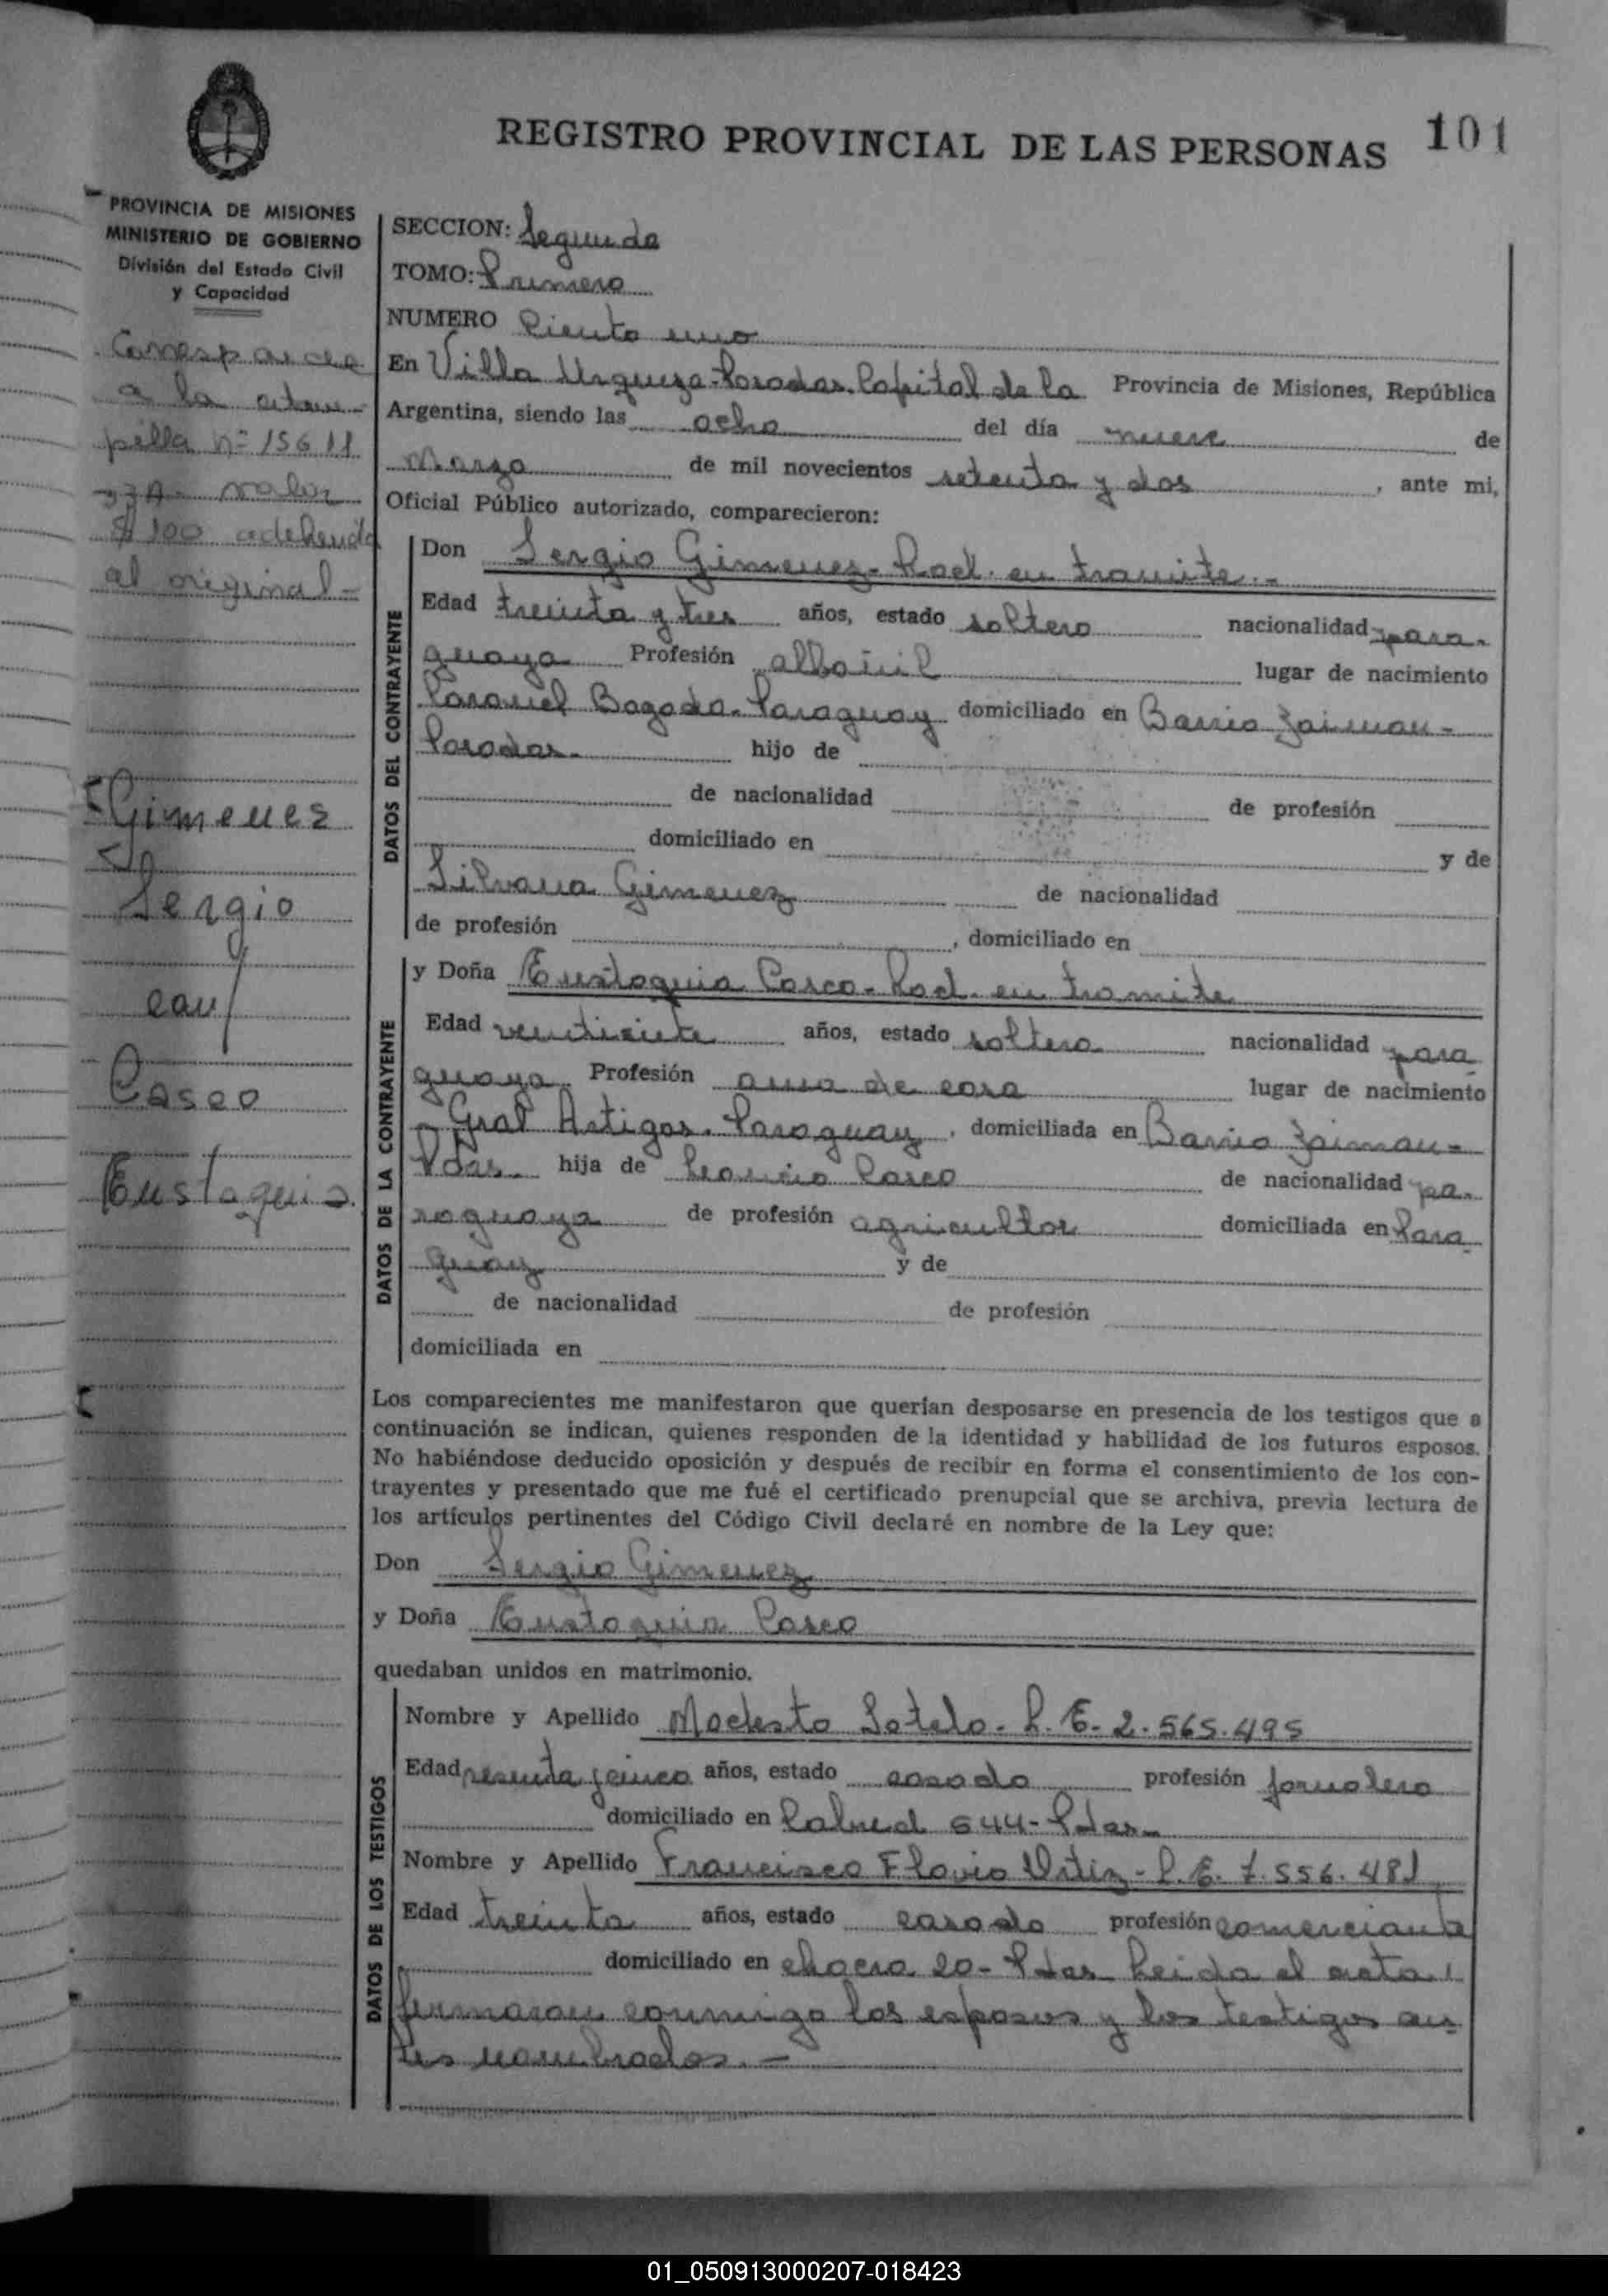 REGISTRO PROVINCIAL DE LAS PERSONAS 101
PROVINCIA DE MISIONES
MINISTERIO DE GOBIERNO
División del Estado Civil
y Capacidad
Corresponde
a la estam-
pilla nº 15611
valor
$ 100 adherida
al original-
Gimenez
Sergio
con
Casco
Eustaquia
SECCION: Segunda
TOMO: Primero
NUMERO Ciento uno
En Villa Urquiza-Posadas. Capital de la Provincia de Misiones, República
Argentina, siendo las ocho del día nueve de
Marzo de mil novecientos setenta y dos, ante mi,
Oficial Público autorizado, comparecieron:
DATOS DEL CONTRAYENTE
Don Sergio Gimenez- Rad. en tramite.-
Edad treinta y tres años, estado soltero nacionalidad para-
guaya Profesión albañil lugar de nacimiento
Coronel Bogado- Paraguay domiciliado en Barrio Zaiman-
Posadas- hijo de
de nacionalidad de profesión
domiciliado en y de
Silvana Gimenez de nacionalidad
de profesión , domiciliado en
DATOS DE LA CONTRAYENTE
y Doña Eustaquia Casco- Rad. en tramite
Edad veintisiete años, estado soltera nacionalidad para
guaya. Profesión ama de casa lugar de nacimiento
Gral Artigas. Paraguay, domiciliada en Barrio Zaiman-
Pdas- hija de Casco de nacionalidad pa-
raguaya de profesión agricultor domiciliada en Para
guay y de
de nacionalidad de profesión
domiciliada en
Los comparecientes me manifestaron que querían desposarse en presencia de los testigos que a
continuación se indican, quienes responden de la identidad y habilidad de los futuros esposos.
No habiéndose deducido oposición y después de recibir en forma el consentimiento de los con-
trayentes y presentado que me fué el certificado prenupcial que se archiva, previa lectura de
los artículos pertinentes del Código Civil declaré en nombre de la Ley que:
Don Sergio Gimenez
y Doña Eustaquia Casco
quedaban unidos en matrimonio.
DATOS DE LOS TESTIGOS
Nombre y Apellido Modesto Sotelo- L.E- 2.565.495
Edad sesenta y cinco años, estado casado profesión jornalero
domiciliado en Cabred 644- Pdas-
Nombre y Apellido Francisco Flavio Ortiz- L.E. 7.556.481
Edad treinta años, estado casado profesión comerciante
domiciliado en chacra 20- Pdas Leida el acta,
firmaron conmigo los esposos y los testigos an
tes nombrados.-
01_050913000207-018423